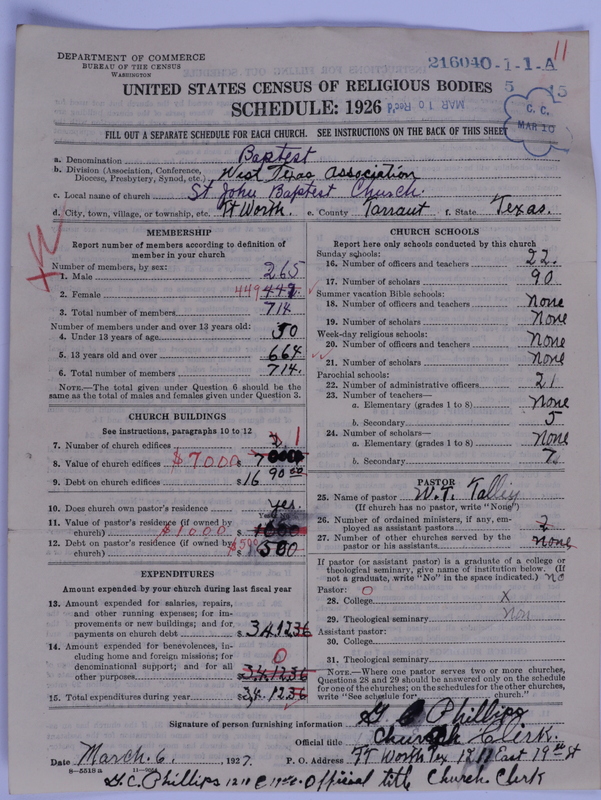 DEPARTMENT OF COMMERCE
BUREAU OF THE CENSUS
WASHINGTON
216040-1-1-A
11
UNITED STATES CENSUS OF RELIGIOUS BODIES
5 15
SCHEDULE: 1926
MAR 10 Rec'd
C. C.
MAR 10
FILL OUT A SEPARATE SCHEDULE FOR EACH CHURCH. SEE INSTRUCTIONS ON THE BACK OF THIS SHEET
a. Denomination Baptest
b. Division (Association, Conference, Diocese, Presbytery, Synod, etc.) West Texas Association
c. Local name of church St John Baptest Church.
d. City, town, village, or township, etc. Ft Worth. e. County Tarraut f. State Texas.
MEMBERSHIP
Report number of members according to definition of
member in your church
Number of members, by sex:
1. Male 265
2. Female 449 449.
3. Total number of members 714
Number of members under and over 13 years old:
4. Under 13 years of age 50
5. 13 years old and over 664
6. Total number of members 714.
NOTE.—The total given under Question 6 should be
same as the total of males and females given under Question 3.
CHURCH BUILDINGS
See instructions, paragraphs 10 to 12
7. Number of church edifices 1
8. Value of church edifices $7000 $ 7000
9. Debt on church edifices $16 90 00
10. Does church own pastor's residence yes.
11. Value of pastor's residence (if owned by
church) $1000
12. Debt on pastor's residence (if owned by
church) $500
EXPENDITURES
Amount expended by your church during last fiscal year
13. Amount expended for salaries, repairs,
and other running expenses; for im-
provements or new buildings; and for
payments on church debt $ 341236
14. Amount expended for benevolences, in-
cluding home and foreign missions; for
denominational support; and for all
other purposes 0 341236
15. Total expenditures during year $ 341236
CHURCH SCHOOLS
Report here only schools conducted by this church
Sunday schools:
16. Number of officers and teachers 22.
17. Number of scholars 90
Summer vacation Bible schools:
18. Number of officers and teachers none
19. Number of scholars none
Week-day religious schools:
20. Number of officers and teachers none
21. Number of scholars none
Parochial schools:
22. Number of administrative officers 21
23. Number of teachers—
a. Elementary (grades 1 to 8) none
b. Secondary 5
24. Number of scholars—
a. Elementary (grades 1 to 8) none
b. Secondary 7
PASTOR
25. Name of pastor W. T. Talliy
(If church has no pastor, write "None")
26. Number of ordained ministers, if any, em-
ployed as assistant pastors 2
27. Number of other churches served by the
pastor or his assistants none
If pastor (or assistant pastor) is a graduate of a college or
theological seminary, give name of institution below. (If
not a graduate, write "No" in the space indicated.) no
Pastor: 0
28. College x
29. Theological seminary non
Assistant pastor:
30. College
31. Theological seminary
NOTE.—Where one pastor serves two or more churches,
Questions 28 and 29 should be answered only on the schedule
for one of the churches; on the schedules for the other churches,
write "See schedule for church."
Signature of person furnishing information G. C Phillips
Official title Church Clerk.
Date March. 6. , 1927. P. O. Address Ft Worth Tex 1211 East 19th St
8—5518 a
G. C. Phillips 1211 E 19 St. Official title Church. Clerk